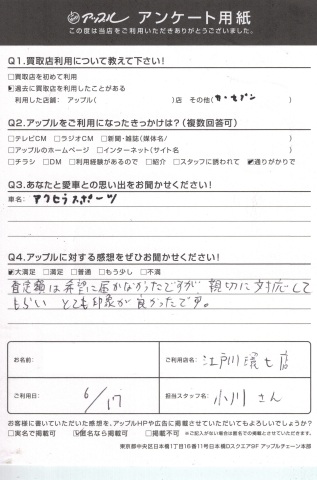 アップル アンケート用紙
この度は当店をご利用いただきありがとうございました。
Q1.買取店利用について教えて下さい!
□買取店を初めて利用
☑過去に買取店を利用したことがある
利用した店舗: アップル( )店 その他( カーセブン )
Q2.アップルをご利用になったきっかけは?(複数回答可)
□テレビCM □ラジオCM □新聞・雑誌(媒体名/ )
□アップルのホームページ □インターネット(サイト名 )
□チラシ □DM □利用経験があるので □紹介 □スタッフに誘われて ☑通りがかりで
Q3.あなたと愛車との思い出をお聞かせください!
車名: アクセラスポーツ
Q4.アップルに対する感想をぜひお聞かせください!
☑大満足 □満足 □普通 □もう少し □不満
査定額は希望に届かなかったですが 親切に対応して
もらい とても印象が良かったです。
お名前: ご利用店名: 江戸川環七店
ご利用日: 6/17 担当スタッフ名: 小川 さん
お客様に書いていただいた感想を、アップルHPや広告に掲載させていただいてもよろしいでしょうか?
□実名で掲載可 ☑匿名なら掲載可 □掲載不可 ※ご記入がない場合は匿名での掲載とさせていただきます。
東京都中央区日本橋1丁目16番11号日本橋Dスクエア9F アップルチェーン本部